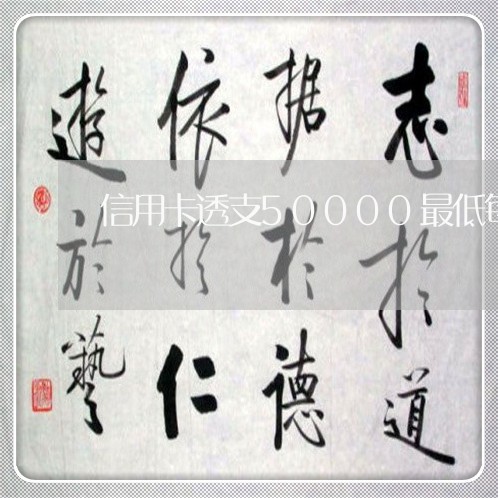 志於道
据於德
依於仁
遊於藝
信用卡透支50000最低